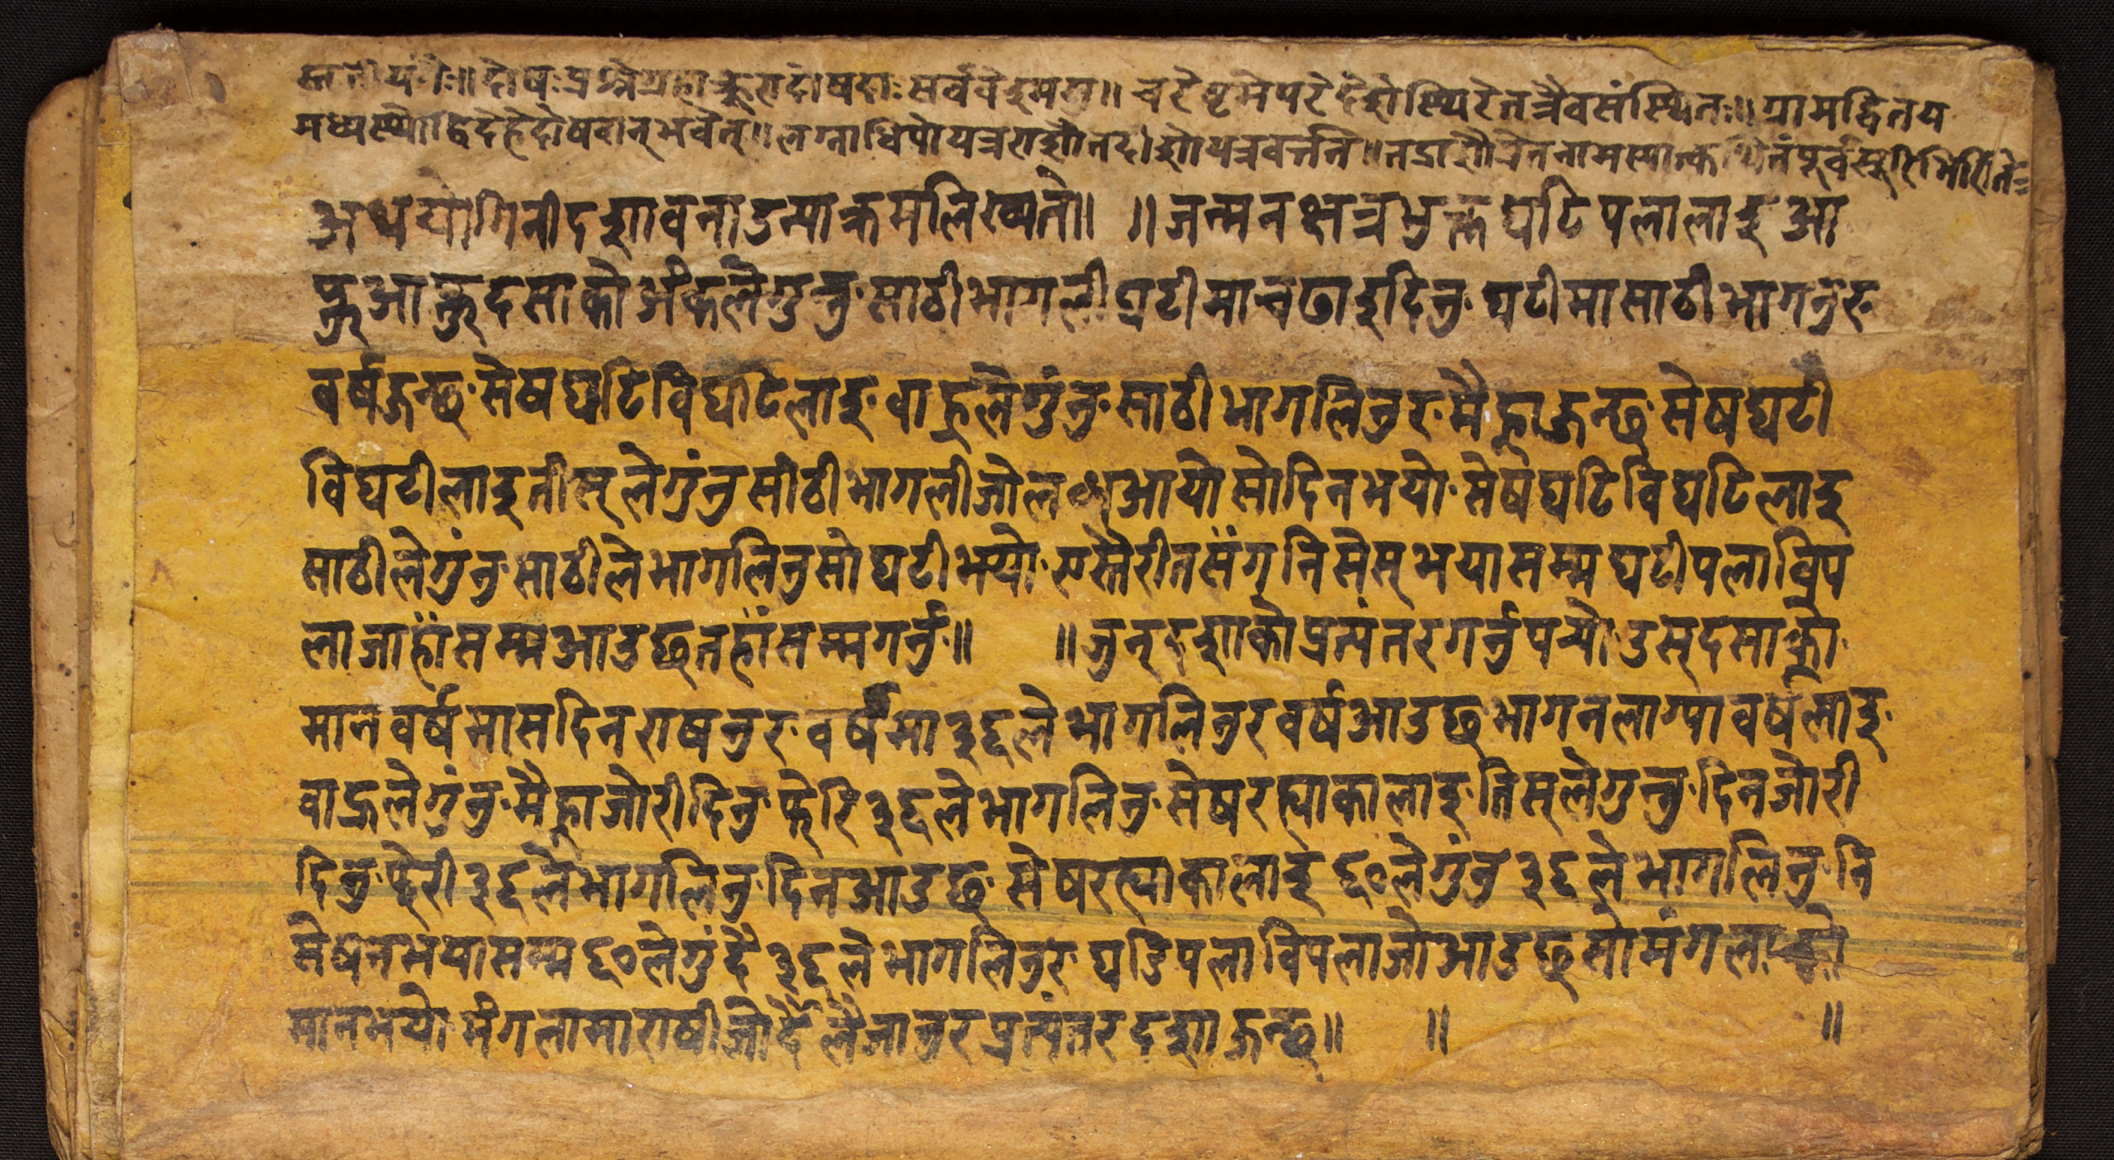 दोषः प्रश्ने ग्रहाः क्रूरा दोषदाः सर्ववेश्मसु॥ चरे परदेशे स्थिरे तत्रैव संस्थितः॥
मध्यस्थो द्विदेहे दोषवान् भवेत्॥ लग्नाधिपो यत्र राशौ यत्र वर्त्तते॥ पूर्वसूरिभिरिति
अथ योगिनीदशा वनाउमा क्रम लिख्यते॥ ॥जन्मनक्षत्र भुक्त घटि पलालाइ आ
फ्नु आफ्नु दसाको अंकले गुन्नु साठी भाग ली घटीमा चढाइदिनु घटीमा साठी भागनु र
वर्ष हुन्छ सेष घटि विघटिलाइ वाह्रले गुंनु साठी भाग लिनु र मैह्ना हुन्छ सेष घटी
विघटीलाइ तीस्ले गुंनु साठी भाग ली जो लब्ध आयो सो दिन भयो सेष घटि विघटिलाइ
साठीले गुंनु साठीले भाग लिनु सो घटी भयो एस्तै रीतसँग निसेस् भयासम्म घटी पला विप
ला जाहाँसम्म आउछ तहाँसम्म गर्नु॥ ॥जुन् दशाको प्रत्यंतर गर्नु पर्यो उस् दसाको
मान वर्ष मास दिन राषनु र वर्षमा ३६ले भाग लिनु र वर्ष आउछ भाग नलाग्या वर्षलाइ
वाह्रले गुंनु मैह्ना जोरी दिनु फेरि ३६ले भाग लिनु सेष रह्याकालाइ तिस्ले गुन्नु दिन जोरी
दिनु फेरी ३६ले भाग लिनु दिन आउछ सेष रह्याकालाइ ६०ले गुंनु ३६ले भाग लिनु नि
सेष नभयासम्म ६०ले गुंदै ३६ले भाग लिनु र घडि पला विपला जो आउछ सो मंगलाको
मान भयो मंगलामा राषी जोर्दै लैजानु र प्रत्यंतर दशा हुन्छ॥ ॥ ॥